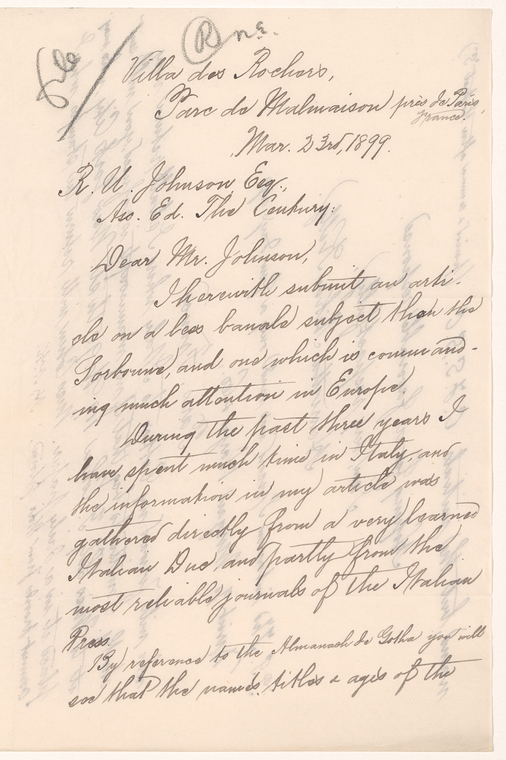 Villa des Rochers,
Parc de Malmaison près de Paris,
France.
Mar. 23rd, 1899.
R. U. Johnson Esq.,
Ass. Ed. The Century.
Dear Mr. Johnson,
I herewith submit an arti-
cle on a less banale subject than the
Sorbonne, and one which is command-
ing much attention in Europe.
During the past three years I
have spent much time in Italy, and
the information in my article was
gathered directly from a very learned
Italian Duc, and partly from the
most reliable journals of the Italian
Press.
By reference to the Almanach de Gotha you will
see that the names, titles & ages of the